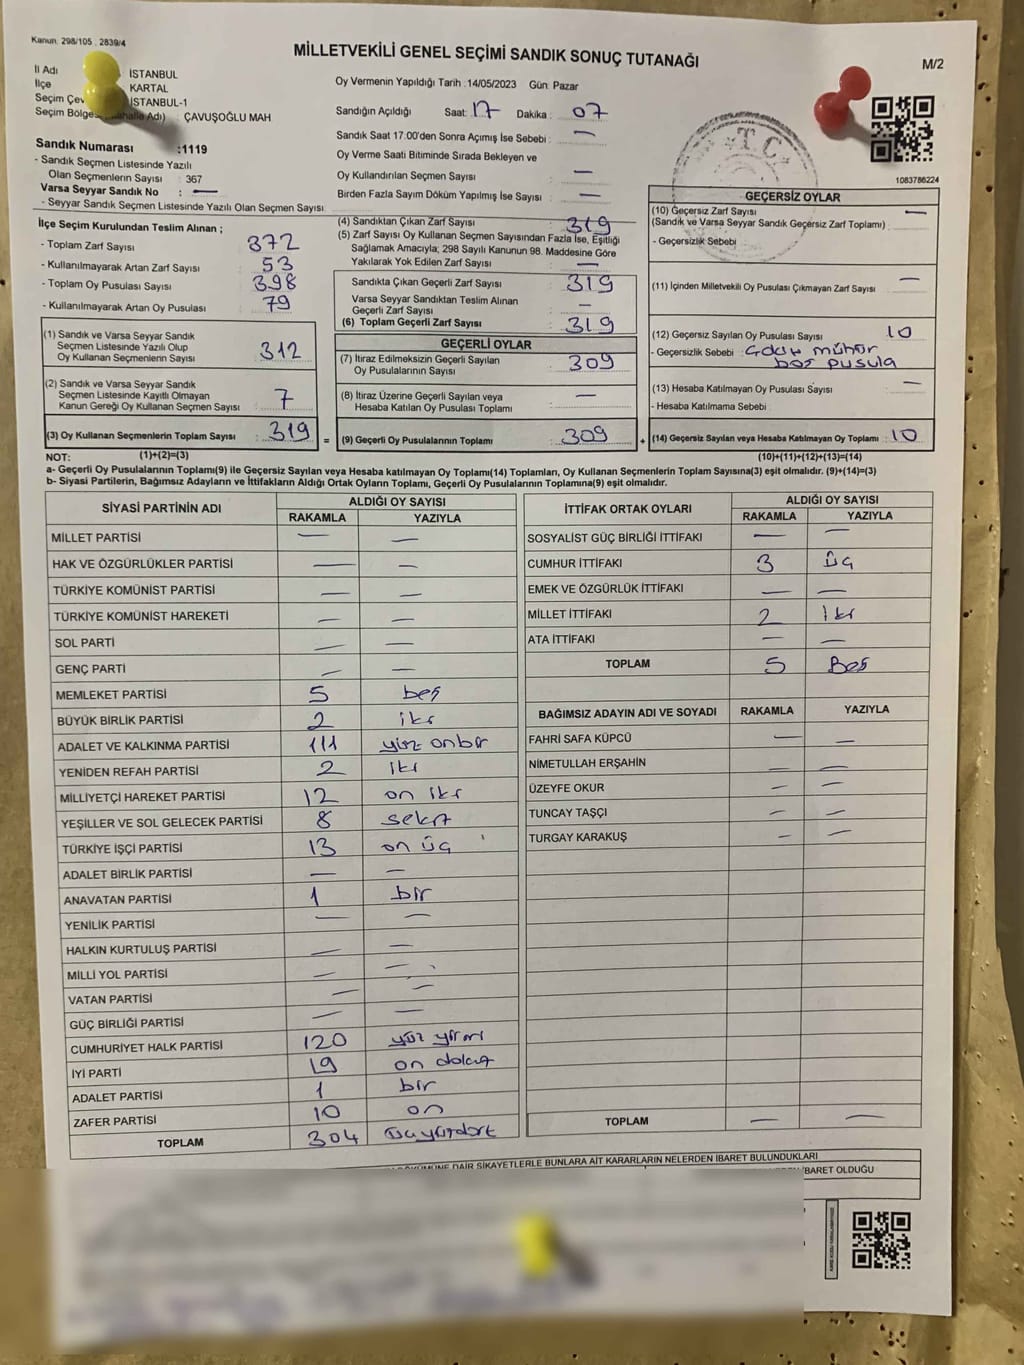 Kanun: 298/105 , 2839/4
MİLLETVEKİLİ GENEL SEÇİMİ SANDIK SONUÇ TUTANAĞI
M/2
İl Adı İSTANBUL
İlçe KARTAL
Seçim Çev İSTANBUL-1
Seçim Bölges Adı) ÇAVUŞOĞLU MAH
Sandık Numarası :1119
- Sandık Seçmen Listesinde Yazılı
Olan Seçmenlerin Sayısı : 367
Varsa Seyyar Sandık No : —
- Seyyar Sandık Seçmen Listesinde Yazılı Olan Seçmen Sayısı:
Oy Vermenin Yapıldığı Tarih :14/05/2023 Gün: Pazar
Sandığın Açıldığı Saat: 17 Dakika : 07
Sandık Saat 17:00'den Sonra Açımış İse Sebebi : —
Oy Verme Saati Bitiminde Sırada Bekleyen ve
Oy Kullandırılan Seçmen Sayısı : —
Birden Fazla Sayım Döküm Yapılmış İse Sayısı : —
T.C.
1083786224
İlçe Seçim Kurulundan Teslim Alınan ;
- Toplam Zarf Sayısı : 372
- Kullanılmayarak Artan Zarf Sayısı : 53
- Toplam Oy Pusulası Sayısı : 398
- Kullanılmayarak Artan Oy Pusulası : 79
(1) Sandık ve Varsa Seyyar Sandık
Seçmen Listesinde Yazılı Olup
Oy Kullanan Seçmenlerin Sayısı : 312
(2) Sandık ve Varsa Seyyar Sandık
Seçmen Listesinde Kayıtlı Olmayan
Kanun Gereği Oy Kullanan Seçmen Sayısı : 7
(3) Oy Kullanan Seçmenlerin Toplam Sayısı : 319
(4) Sandıktan Çıkan Zarf Sayısı : 319
(5) Zarf Sayısı Oy Kullanan Seçmen Sayısından Fazla İse, Eşitliği
Sağlamak Amacıyla; 298 Sayılı Kanunun 98. Maddesine Göre
Yakılarak Yok Edilen Zarf Sayısı : —
Sandıkta Çıkan Geçerli Zarf Sayısı : 319
Varsa Seyyar Sandıktan Teslim Alınan
Geçerli Zarf Sayısı : —
(6) Toplam Geçerli Zarf Sayısı : 319
GEÇERLİ OYLAR
(7) İtiraz Edilmeksizin Geçerli Sayılan
Oy Pusulalarının Sayısı : 309
(8) İtiraz Üzerine Geçerli Sayılan veya
Hesaba Katılan Oy Pusulası Toplamı : —
= (9) Geçerli Oy Pusulalarının Toplamı : 309
GEÇERSİZ OYLAR
(10) Geçersiz Zarf Sayısı —
(Sandık ve Varsa Seyyar Sandık Geçersiz Zarf Toplamı)
- Geçersizlik Sebebi
(11) İçinden Milletvekili Oy Pusulası Çıkmayan Zarf Sayısı : —
(12) Geçersiz Sayılan Oy Pusulası Sayısı : 10
- Geçersizlik Sebebi : mühür
boş pusula
(13) Hesaba Katılmayan Oy Pusulası Sayısı : —
- Hesaba Katılmama Sebebi
+ (14) Geçersiz Sayılan veya Hesaba Katılmayan Oy Toplamı : 10
NOT: (1)+(2)=(3) (10)+(11)+(12)+(13)=(14)
a- Geçerli Oy Pusulalarının Toplamı(9) ile Geçersiz Sayılan veya Hesaba katılmayan Oy Toplamı(14) Toplamları, Oy Kullanan Seçmenlerin Toplam Sayısına(3) eşit olmalıdır. (9)+(14)=(3)
b- Siyasi Partilerin, Bağımsız Adayların ve İttifakların Aldığı Ortak Oyların Toplamı, Geçerli Oy Pusulalarının Toplamına(9) eşit olmalıdır.
SİYASİ PARTİNİN ADI ALDIĞI OY SAYISI
RAKAMLA YAZIYLA
MİLLET PARTİSİ — —
HAK VE ÖZGÜRLÜKLER PARTİSİ — —
TÜRKİYE KOMÜNİST PARTİSİ — —
TÜRKİYE KOMÜNİST HAREKETİ — —
SOL PARTİ — —
GENÇ PARTİ — —
MEMLEKET PARTİSİ 5 beş
BÜYÜK BİRLİK PARTİSİ 2 iki
ADALET VE KALKINMA PARTİSİ 111 yüz onbir
YENİDEN REFAH PARTİSİ 2 iki
MİLLİYETÇİ HAREKET PARTİSİ 12 on iki
YEŞİLLER VE SOL GELECEK PARTİSİ 8 sekiz
TÜRKİYE İŞÇİ PARTİSİ 13 on üç
ADALET BİRLİK PARTİSİ — —
ANAVATAN PARTİSİ 1 bir
YENİLİK PARTİSİ — —
HALKIN KURTULUŞ PARTİSİ — —
MİLLİ YOL PARTİSİ — —
VATAN PARTİSİ — —
GÜÇ BİRLİĞİ PARTİSİ — —
CUMHURİYET HALK PARTİSİ 120 yüz yirmi
İYİ PARTİ 19 on dokuz
ADALET PARTİSİ 1 bir
ZAFER PARTİSİ 10 on
TOPLAM 304 üçyüzdört
İTTİFAK ORTAK OYLARI ALDIĞI OY SAYISI
RAKAMLA YAZIYLA
SOSYALİST GÜÇ BİRLİĞİ İTTİFAKI — —
CUMHUR İTTİFAKI 3 üç
EMEK VE ÖZGÜRLÜK İTTİFAKI — —
MİLLET İTTİFAKI 2 iki
ATA İTTİFAKI — —
TOPLAM 5 Beş
BAĞIMSIZ ADAYIN ADI VE SOYADI RAKAMLA YAZIYLA
FAHRİ SAFA KÜPCÜ — —
NİMETULLAH ERŞAHİN — —
ÜZEYFE OKUR — —
TUNCAY TAŞÇI — —
TURGAY KARAKUŞ — —
TOPLAM — —
DAİR ŞİKAYETLERLE BUNLARA AİT KARARLARIN NELERDEN İBARET BULUNDUKLARI
İBARET OLDUĞU